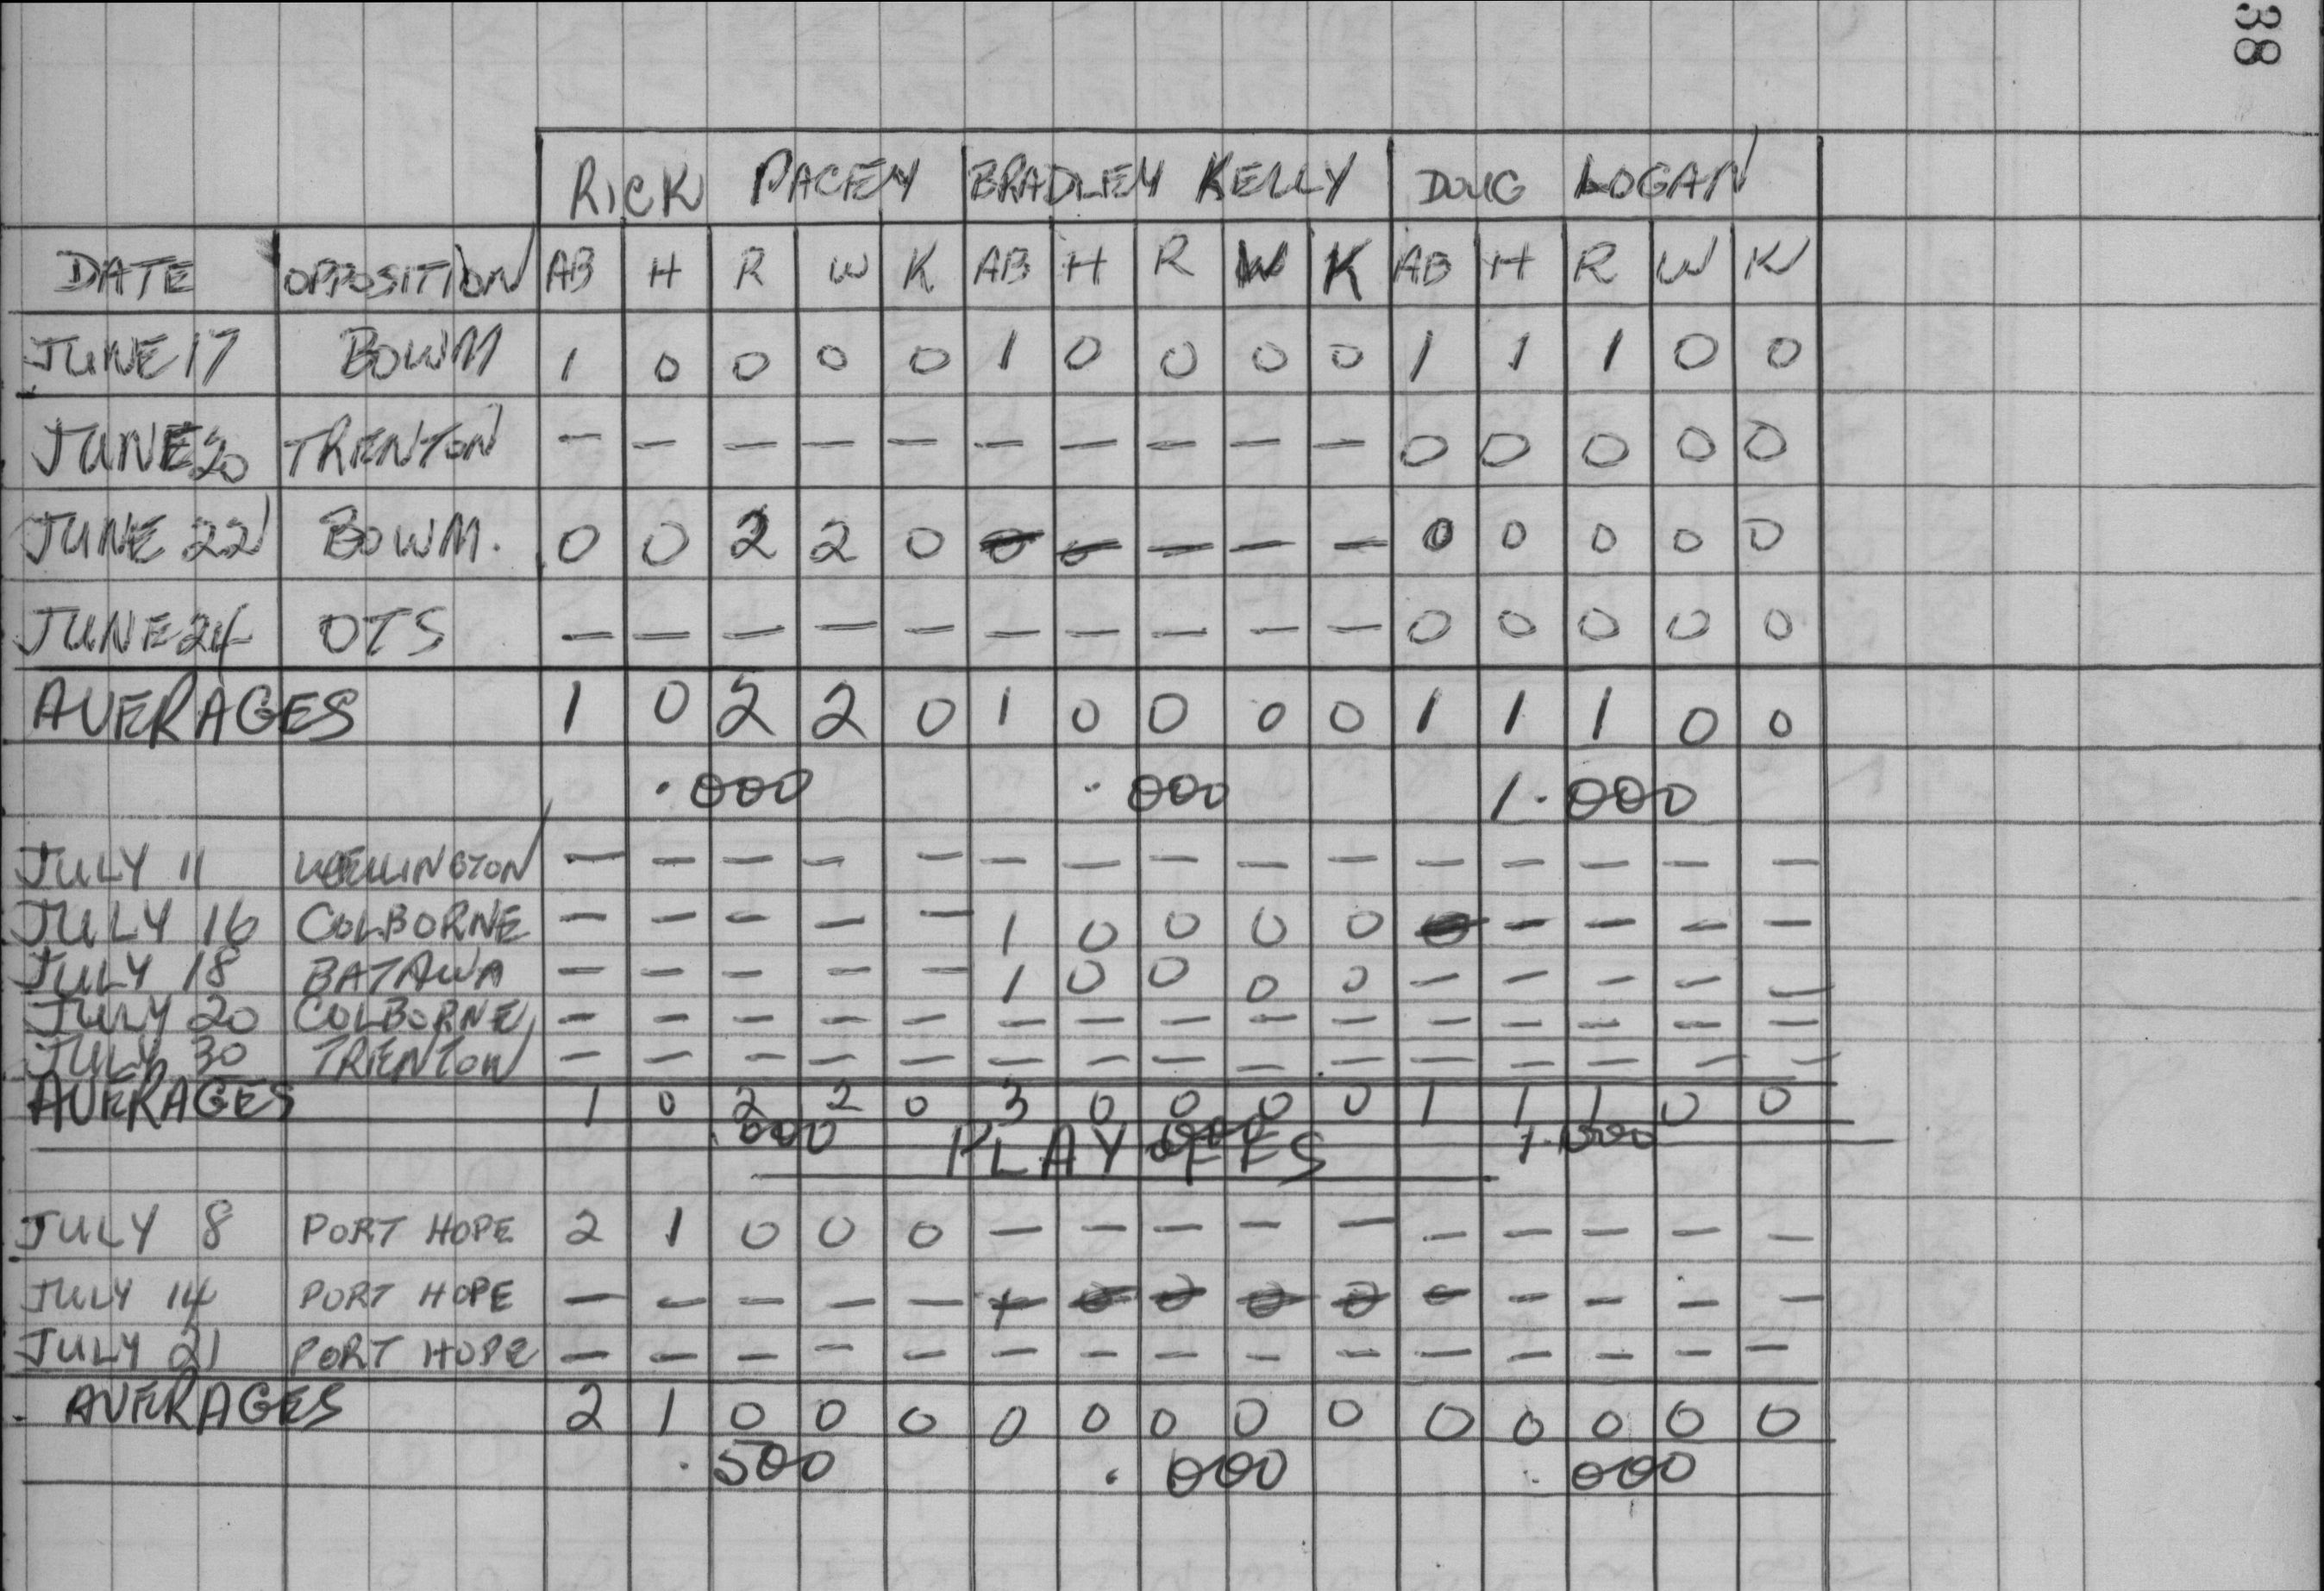 38
RICK PACEY BRADLEY KELLY DOUG LOGAN
DATE OPPOSITION AB H R W K AB H R W K AB H R W K
JUNE 17 BOWM 1 0 0 0 0 1 0 0 0 0 1 1 1 0 0
JUNE 20 TRENTON - - - - - - - - - - 0 0 0 0 0
JUNE 22 BOWM. 0 0 2 2 0 - - - - - 0 0 0 0 0
JUNE 24 OTS - - - - - - - - - - 0 0 0 0 0
AVERAGES 1 0 2 2 0 1 0 0 0 0 1 1 1 0 0
.000 .000 1.000
JULY 11 WELLINGTON - - - - - - - - - - - - - - -
JULY 16 COLBORNE - - - - - 1 0 0 0 0 - - - - -
JULY 18 BATAWA - - - - - 1 0 0 0 0 - - - - -
JULY 20 COLBORNE - - - - - - - - - - - - - - -
JULY 30 TRENTON - - - - - - - - - - - - - - -
AVERAGES 1 0 2 2 0 3 0 0 0 0 1 1 1 0 0
.000 .000 1.000
PLAY OFFS
JULY 8 PORT HOPE 2 1 0 0 0 - - - - - - - - - -
JULY 14 PORT HOPE - - - - - - - - - - - - - - -
JULY 21 PORT HOPE - - - - - - - - - - - - - - -
AVERAGES 2 1 0 0 0 0 0 0 0 0 0 0 0 0 0
.500 .000 .000